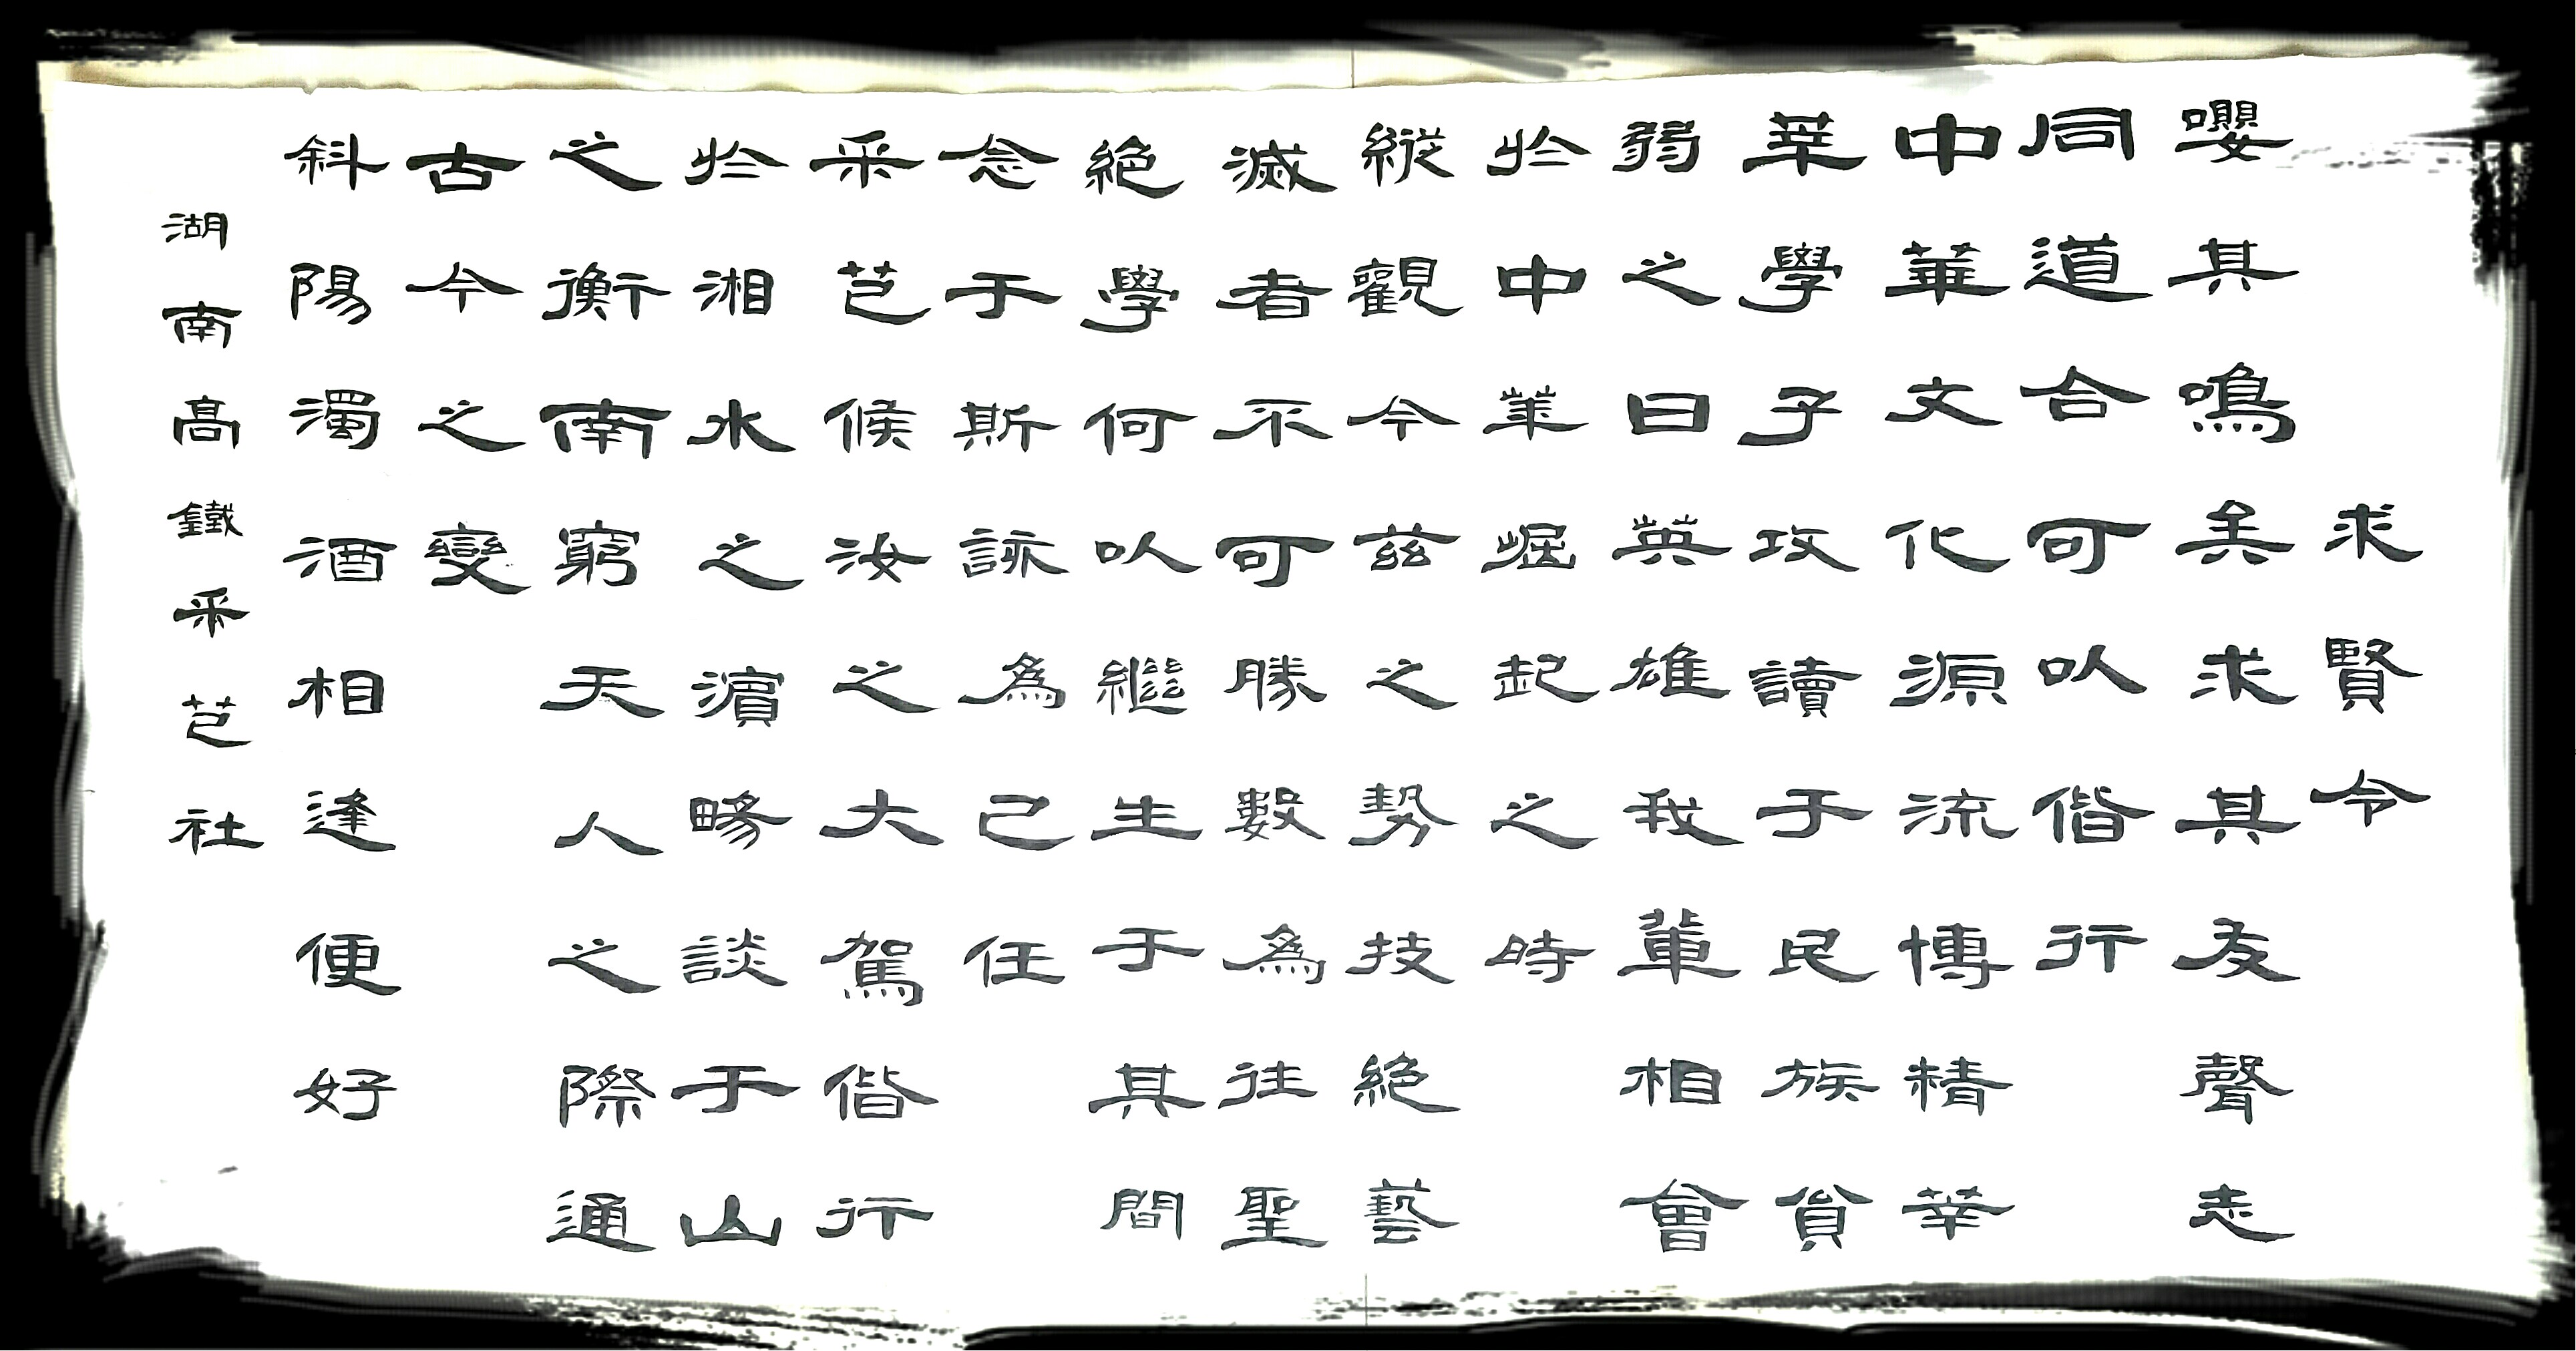 求賢令
嚶其鳴矣求其友聲志
同道合可以偕行
中華文化源流博精莘
莘學子攻讀于民族貧
弱之日英雄我輩相會
於中華崛起之時
縱觀今茲之勢技絕藝
滅者不可勝數為往聖
絕學何以繼生于其間
念于斯詠為己任
采芑候汝之大駕偕行
於湘水之濱暢談于山
之衡南窮天人之際通
古今之變
斜陽濁酒相逢便好
湖南高鐵采芑社